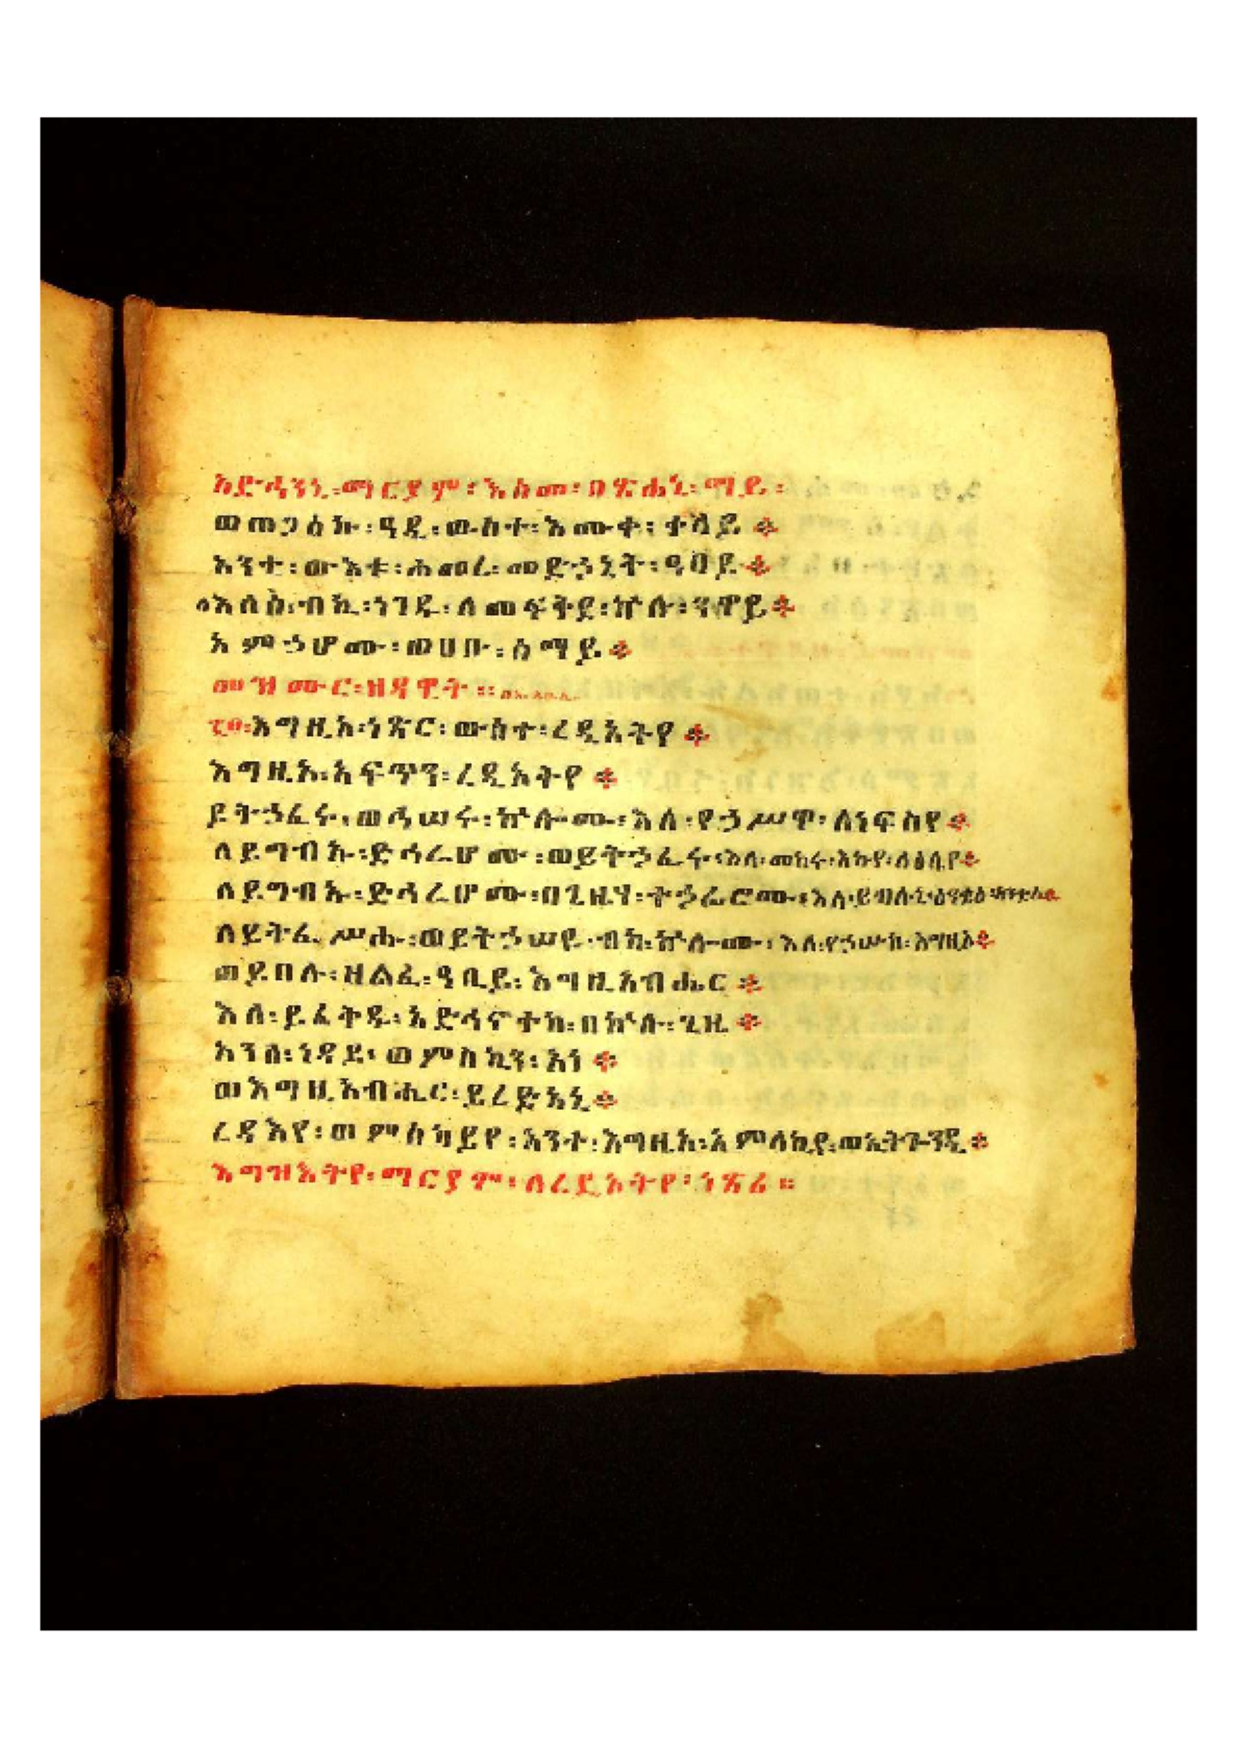 አድኅንኒ፡ማርያም፡እስመ፡በጽሐኒ፡ማይ፡
ወጠጋዕኩ፡ዓዲ፡ውስተ፡እሙቀ፡ቀላይ፨
አንተ፡ውእቱ፡ሐመረ፡መድኃኒት፡ዓባይ፨
እለ፡ብኪ፡ነገዱ፡ለመፍትደ፡ኵሉ፡ንዋይ፨
አምኃሆሙ፡ወሀቡ፡ሰማይ፨
መዝሙር፡ዘዳዊት።
፷፱፡እግዚአ፡ነጽር፡ውስተ፡ረዲኦትየ፨
እግዚኦ፡አፍጥን፡ረዲኦትየ፨
ይትኃፈሩ፡ወኅሠሩ፡ኵሎሙ፡እለ፡የኃሥዋ፡ለነፍስየ፨
ለይግብኡ፡ድኅሬሆሙ፡ወይትኃፈሩ፡እለ፡መከሩ፡እኩየ፡ላዕሌየ፨
ለይግብኡ፡ድኅሬሆሙ፡በጊዜሃ፡ተኃፊሮሙ፡እለ፡ይብሉኒ፡እንቋዕ፡እንቋዕ፨
ለይትፈሥሑ፡ወይትኃሠዩ፡ብከ፡ኵሎሙ፡እለ፡የኃሡከ፡እግዚኦ፨
ወይበሉ፡ዘልፈ፡ዓቢይ፡እግዚአብሔር፨
እለ፡ይፈትዱ፡አድኅኖተከ፡በኵሉ፡ጊዜ፨
አንሰ፡ነዳይ፡ወምስኪን፡አነ፨
ወእግዚአብሔር፡ይረድአኒ፨
ረዳእየ፡ወምስካይየ፡አንተ፡እግዚአ፡አምላኪየ፡ወኢትጐንዲ፨
እግዝእትየ፡ማርያም፡ለረዲኦትየ፡ነጽሪ።